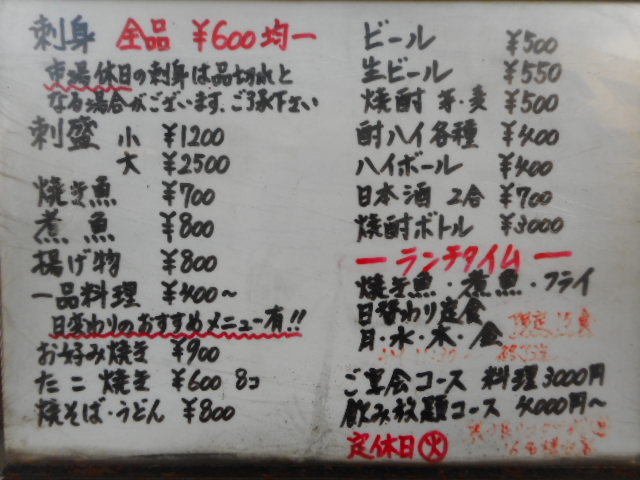 刺身 全品 ¥600均一
市場休日の刺身は品切れと
なる場合がございます、ご了承下さい
刺盛 小 ¥1200
大 ¥2500
焼き魚 ¥700
煮魚 ¥800
揚げ物 ¥800
一品料理 ¥400~
日変わりのおすすめメニュー有!!
お好み焼き ¥900
たこ焼き ¥600 8コ
焼そば・うどん ¥800
ビール ¥500
生ビール ¥550
焼酎 芋・麦 ¥500
酎ハイ各種 ¥400
ハイボール ¥400
日本酒 2合 ¥700
焼酎ボトル ¥3000
ー ランチタイム ー
焼き魚・煮魚・フライ
日替わり定食
月・水・木・金
ご宴会コース 料理3000円
飲み放題コース 4000円~
定休日 火